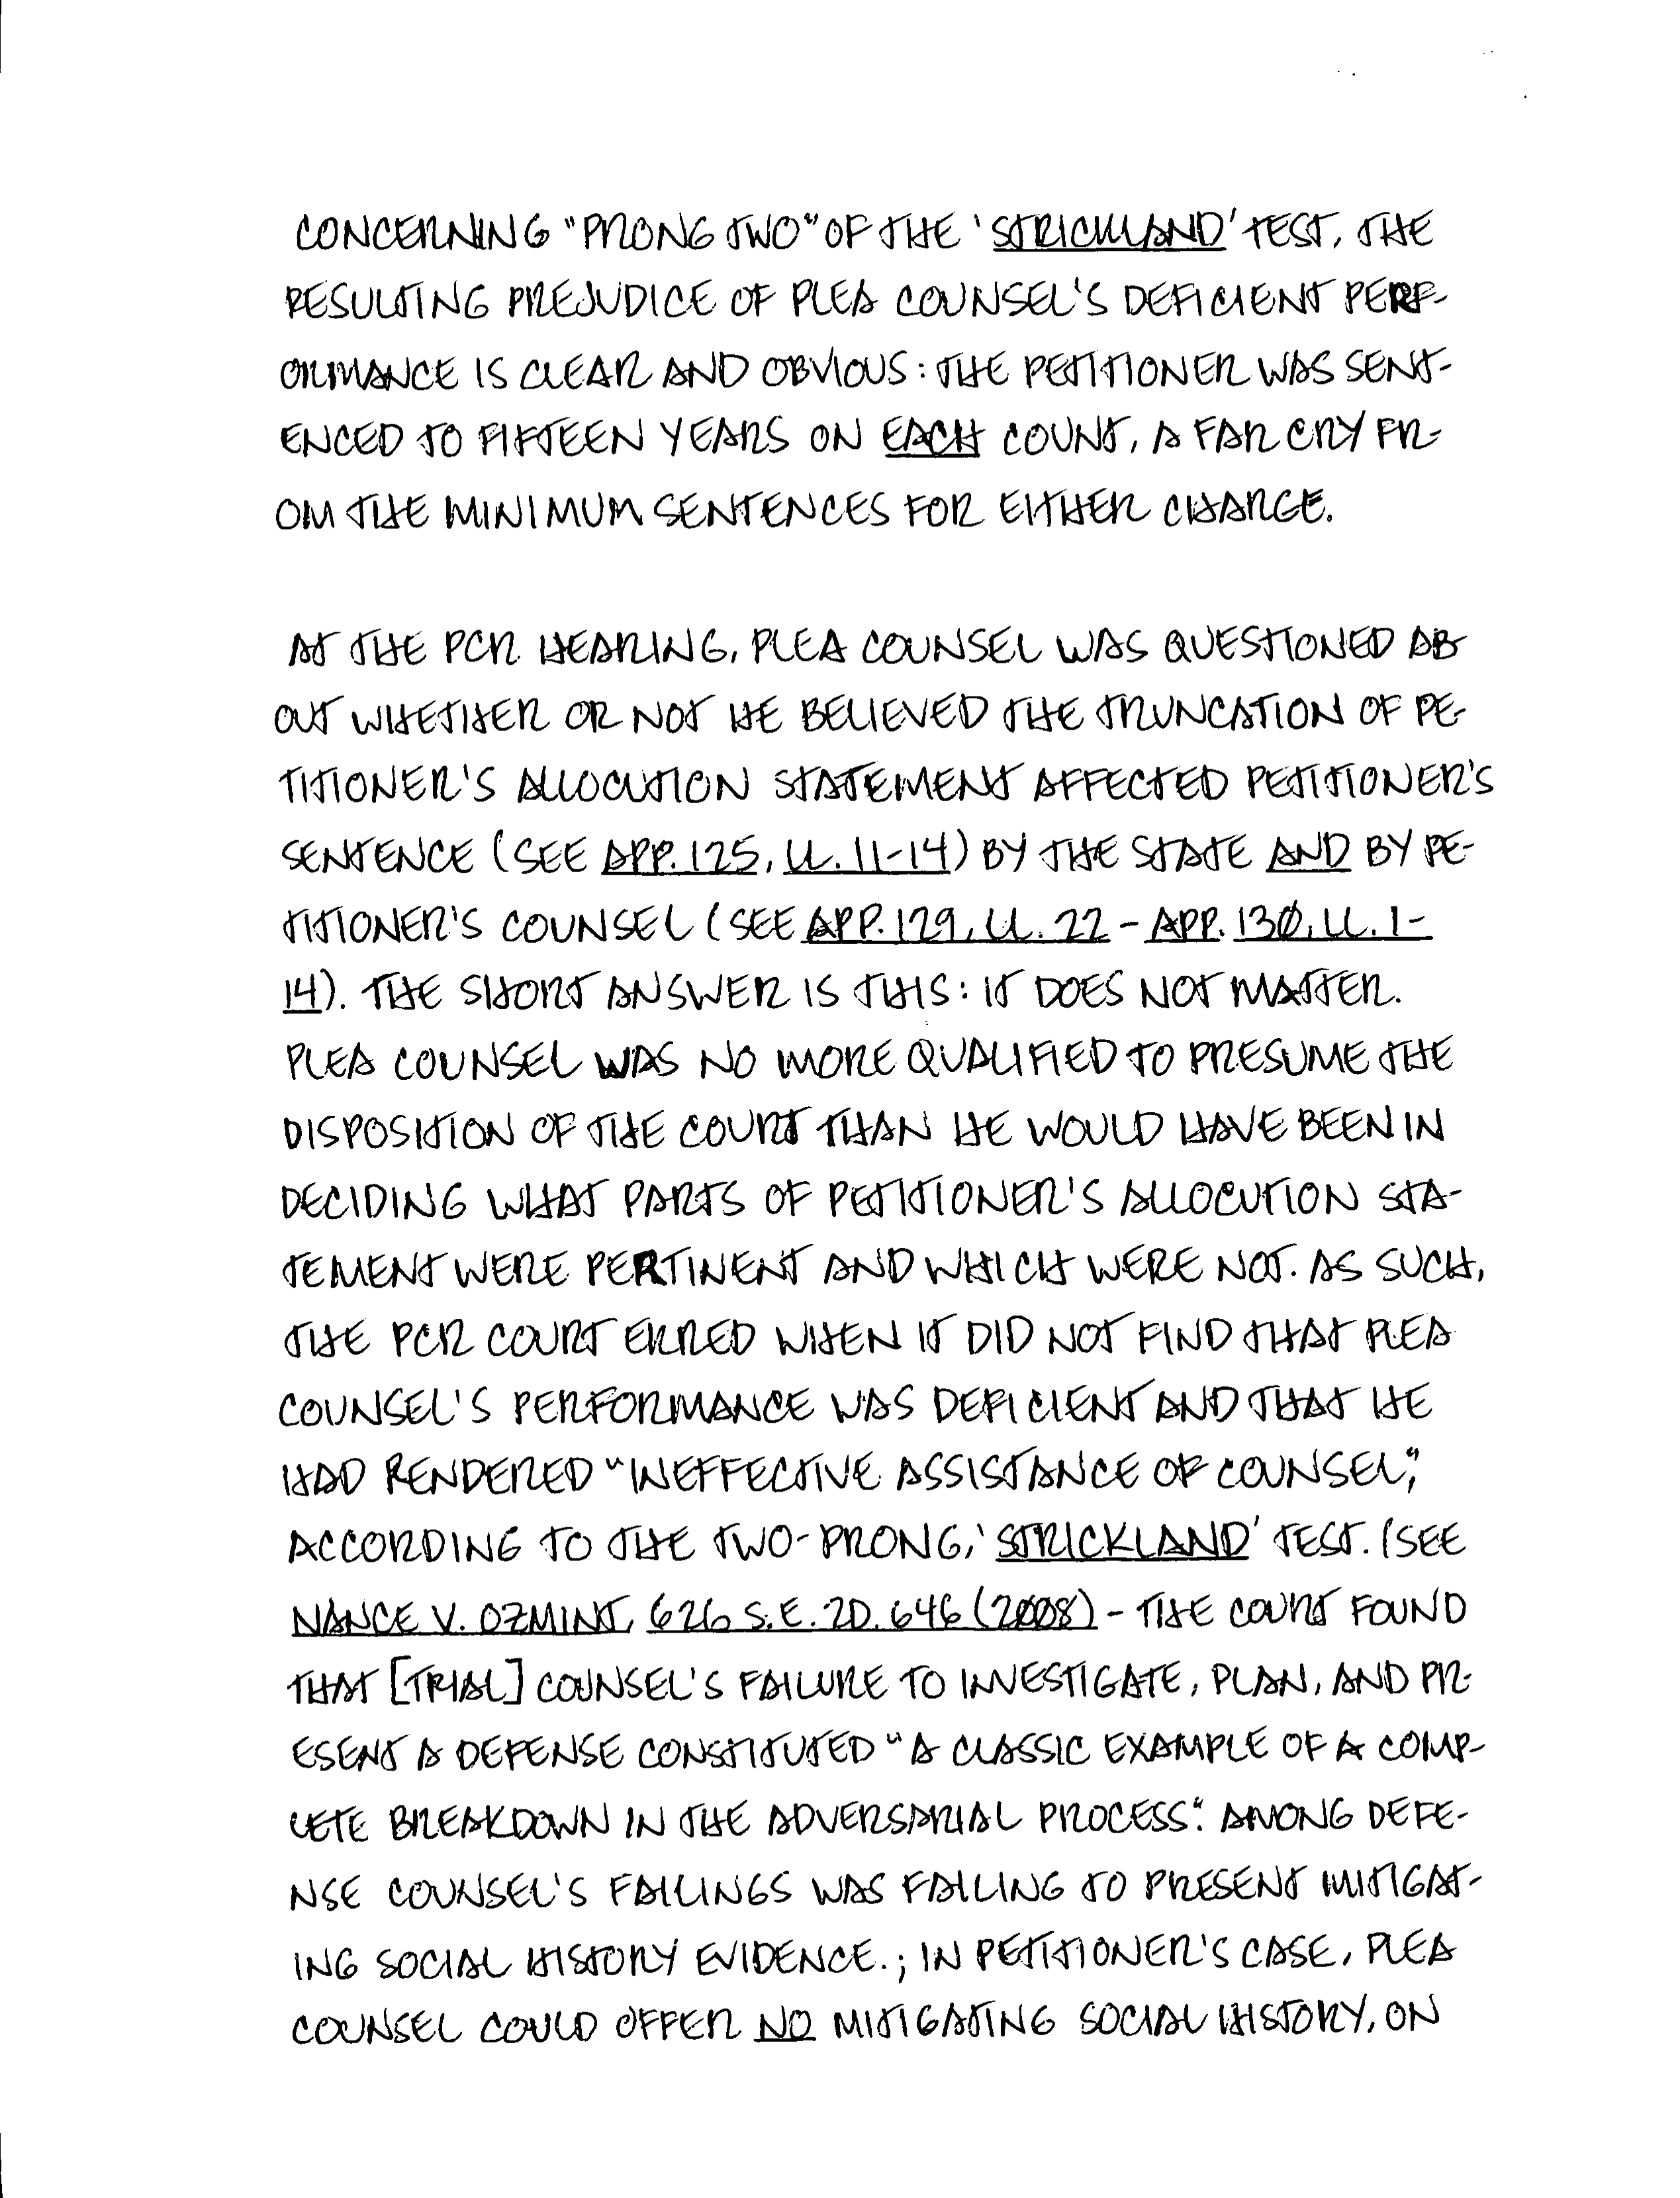 CONCERNING "PRONG TWO" OF THE 'STRICKLAND' TEST, THE
RESULTING PREJUDICE OF PLEA COUNSEL'S DEFICIENT PERF-
ORMANCE IS CLEAR AND OBVIOUS: THE PETITIONER WAS SENT-
ENCED TO FIFTEEN YEARS ON EACH COUNT, A FAR CRY FR-
OM THE MINIMUM SENTENCES FOR EITHER CHARGE.
AT THE PCR HEARING, PLEA COUNSEL WAS QUESTIONED AB-
OUT WHETHER OR NOT HE BELIEVED THE TRUNCATION OF PE-
TITIONER'S ALLOCUTION STATEMENT AFFECTED PETITIONER'S
SENTENCE (SEE APP. 125, LL. 11-14) BY THE STATE AND BY PE-
TITIONER'S COUNSEL (SEE APP. 129, LL. 22 - APP. 130, LL. 1-
14). THE SHORT ANSWER IS THIS: IT DOES NOT MATTER.
PLEA COUNSEL WAS NO MORE QUALIFIED TO PRESUME THE
DISPOSITION OF THE COURT THAN HE WOULD HAVE BEEN IN
DECIDING WHAT PARTS OF PETITIONER'S ALLOCUTION STA-
TEMENT WERE PERTINENT AND WHICH WERE NOT. AS SUCH,
THE PCR COURT ERRED WHEN IT DID NOT FIND THAT PLEA
COUNSEL'S PERFORMANCE WAS DEFICIENT AND THAT HE
HAD RENDERED "INEFFECTIVE ASSISTANCE OF COUNSEL,"
ACCORDING TO THE TWO-PRONG, 'STRICKLAND' TEST. (SEE
NANCE V. OZMINT, 626 S.E. 2D. 646 (2008) - THE COURT FOUND
THAT [TRIAL] COUNSEL'S FAILURE TO INVESTIGATE, PLAN, AND PR-
ESENT A DEFENSE CONSTITUTED "A CLASSIC EXAMPLE OF A COMP-
LETE BREAKDOWN IN THE ADVERSARIAL PROCESS". AMONG DEFE-
NSE COUNSEL'S FAILINGS WAS FAILING TO PRESENT MITIGAT-
ING SOCIAL HISTORY EVIDENCE.; IN PETITIONER'S CASE, PLEA
COUNSEL COULD OFFER NO MITIGATING SOCIAL HISTORY, ON